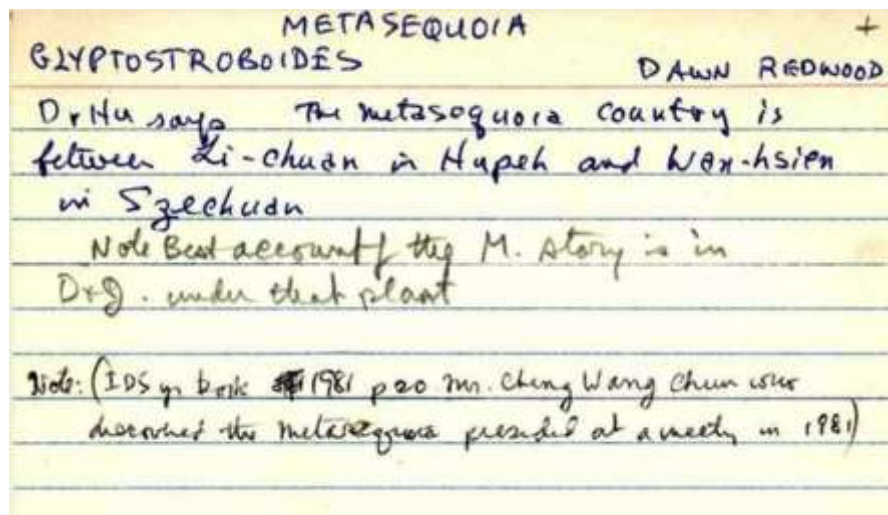 METASEQUOIA +
GLYPTOSTROBOIDES DAWN REDWOOD
Dr Hu says The metasequoia country is
between Li-chuan in Hupeh and Wan-hsien
in Szechuan
Note Best account of the M. story is in
D+J. under that plant
Note: (IDS yr book 1981 p20 Mr. Cheng Wang Chun who
discovered the metasequoia presided at a meeting in 1981)